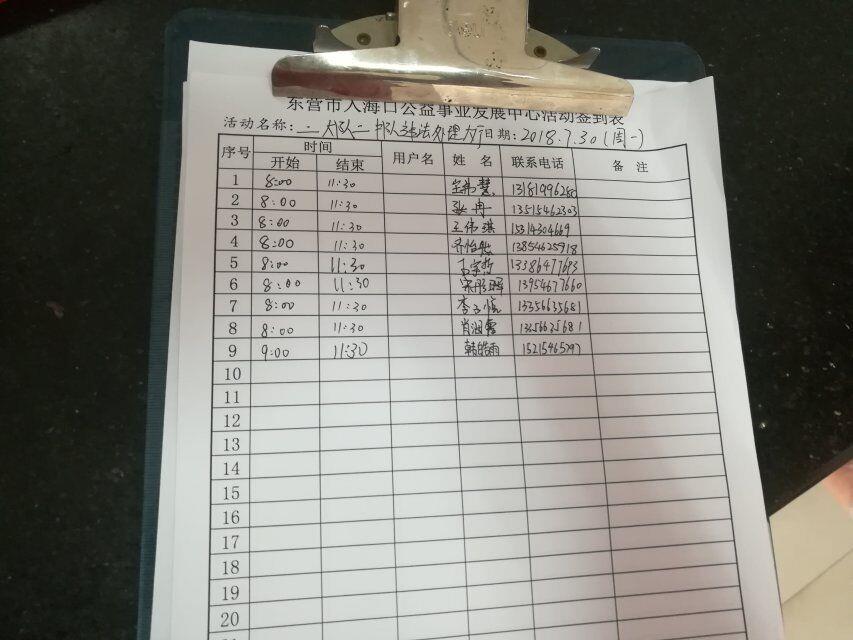 东营市入海口公益事业发展中心活动签到表
活动名称: 二大队二中队违法处理大厅 日期: 2018.7.30(周一)
序号 时间 用户名 姓 名 联系电话 备 注
开始 结束
1 8:00 11:30 13181996280
2 8:00 11:30 张冉 13515462303
3 8:00 11:30 王伟琪 15314304669
4 8:00 11:30 乔怡然 13854625918
5 8:00 11:30 13386477693
6 8:00 11:30 宋彤晖 13954677660
7 8:00 11:30 13356635681
8 8:00 11:30 肖润露 13356635681
9 9:00 11:30 韩皓雨 15215465797
10
11
12
13
14
15
16
17
18
19
20